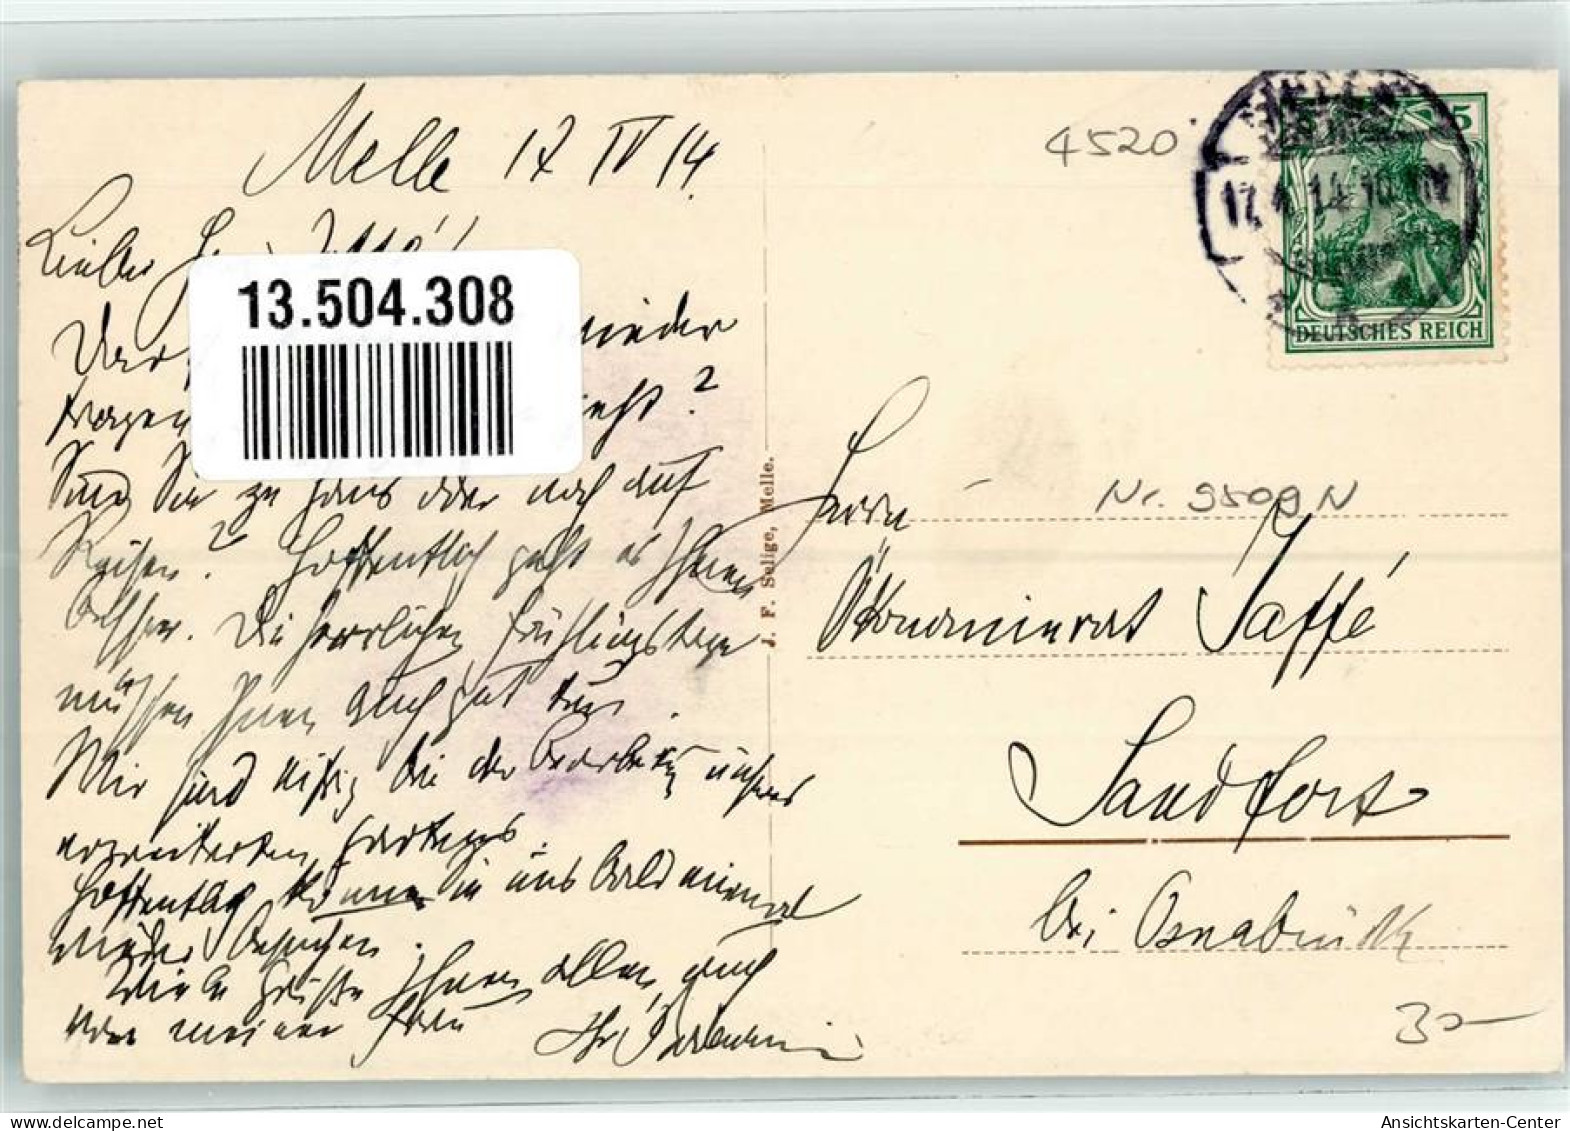 Melle 17 IV 14.
Lieber
13.504.308
wieder
?
Sind Sie zu Haus oder noch auf
Reisen? Hoffentlich geht es Ihnen
besser. Die herrlichen Frühlingstage
müssen Ihnen auch gut tun.
Wir sind bei der unseres
erweiterten Gartens.
Hoffentlich können Sie uns bald einmal
wieder besuchen.
Viele Grüße Ihnen allen, auch
von meiner Frau Ihr
J. F. Selige, Melle.
4520
17.4.14.10
5
DEUTSCHES REICH
Nr. 9509 N
Herrn
Ökonomierat Jaffé
Sandfort
bei Osnabrück
30-
Ansichtskarten-Center